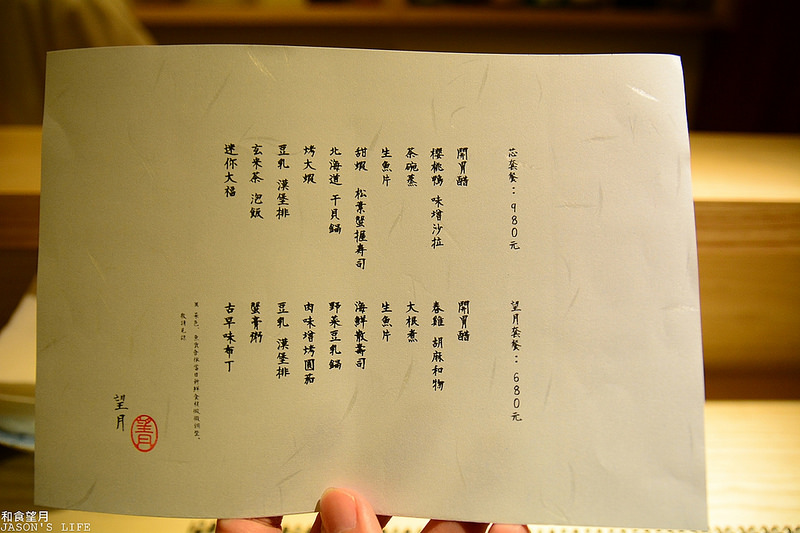 芯葉餐：980元
開胃醋
櫻桃鴨 味增沙拉
茶碗蒸
生魚片
甜蝦 松葉蟹握壽司
北海道 干貝鍋
烤大蝦
豆乳 漢堡排
玄米茶 泡飯
迷你大福
望月葉餐：680元
開胃醋
春雞 胡麻和物
大根煮
生魚片
海鮮散壽司
野菜豆乳鍋
肉味增烤圓茄
豆乳 漢堡排
蟹膏粥
古早味布丁
敬請見諒
望月
望月
和食望月
JASON'S LIFE